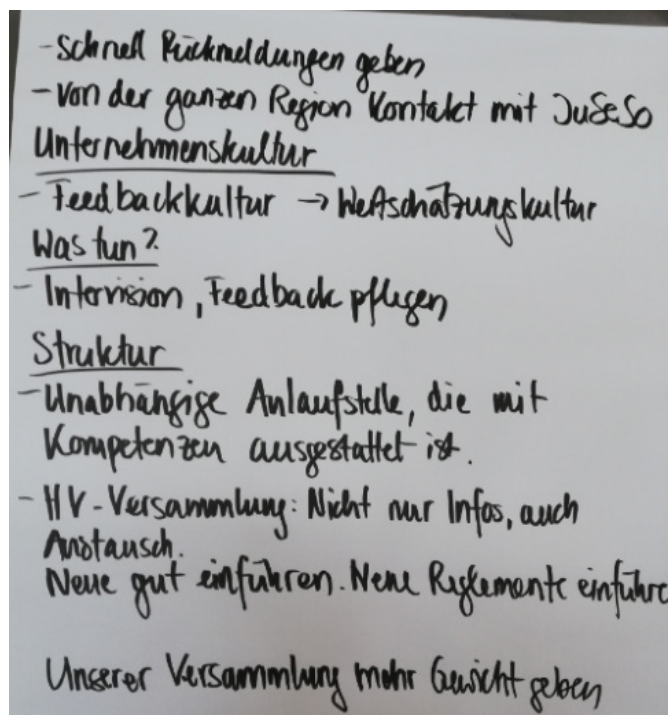 - Schnell Rückmeldungen geben
- Von der ganzen Region Kontakt mit JuSeSo
Unternehmenskultur
- Feedbackkultur → Wertschätzungskultur
Was tun?
- Intervision, Feedback pflegen
Struktur
- Unabhängige Anlaufstelle, die mit
Kompetenzen ausgestattet ist.
- HV-Versammlung: Nicht nur Infos, auch
Austausch.
Neue gut einführen. Neue Reglemente einführe
Unserer Versammlung mehr Gewicht geben